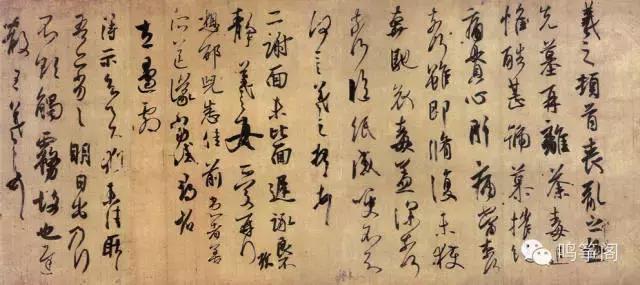 羲之頓首喪亂之極
先墓再離荼毒追
惟酷甚號慕摧絕
痛貫心肝痛當奈何
奈何雖即脩復未獲
奔馳哀毒益深奈何
奈何臨紙感哽不知
何言羲之頓首頓首
二謝面未比面遲詠良不
靜羲之女愛再拜
想邵兒悉佳前患者善
所送議當試尋省
左邊劇
得示知足下猶未佳耿耿
吾亦劣劣明日出乃行
不欲觸霧故也遲
散王羲之頓首
鸣筝阁